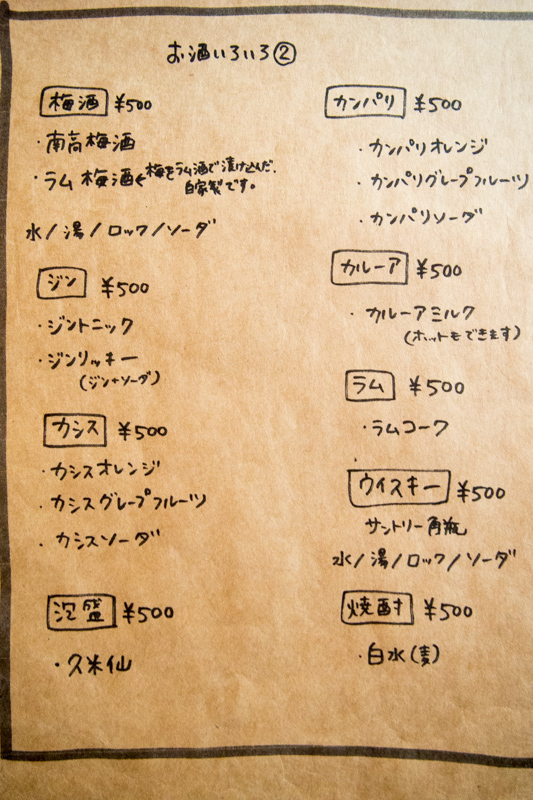 お酒いろいろ②
梅酒 ¥500
・南高梅酒
・ラム梅酒←梅をラム酒で漬け込んだ、
自家製です。
水/湯/ロック/ソーダ
ジン ¥500
・ジントニック
・ジンリッキー
(ジン+ソーダ)
カシス ¥500
・カシスオレンジ
・カシスグレープフルーツ
・カシスソーダ
泡盛 ¥500
・久米仙
カンパリ ¥500
・カンパリオレンジ
・カンパリグレープフルーツ
・カンパリソーダ
カルーア ¥500
・カルーアミルク
(ホットもできます)
ラム ¥500
・ラムコーク
ウイスキー ¥500
サントリー角瓶
水/湯/ロック/ソーダ
焼酎 ¥500
・白水(麦)